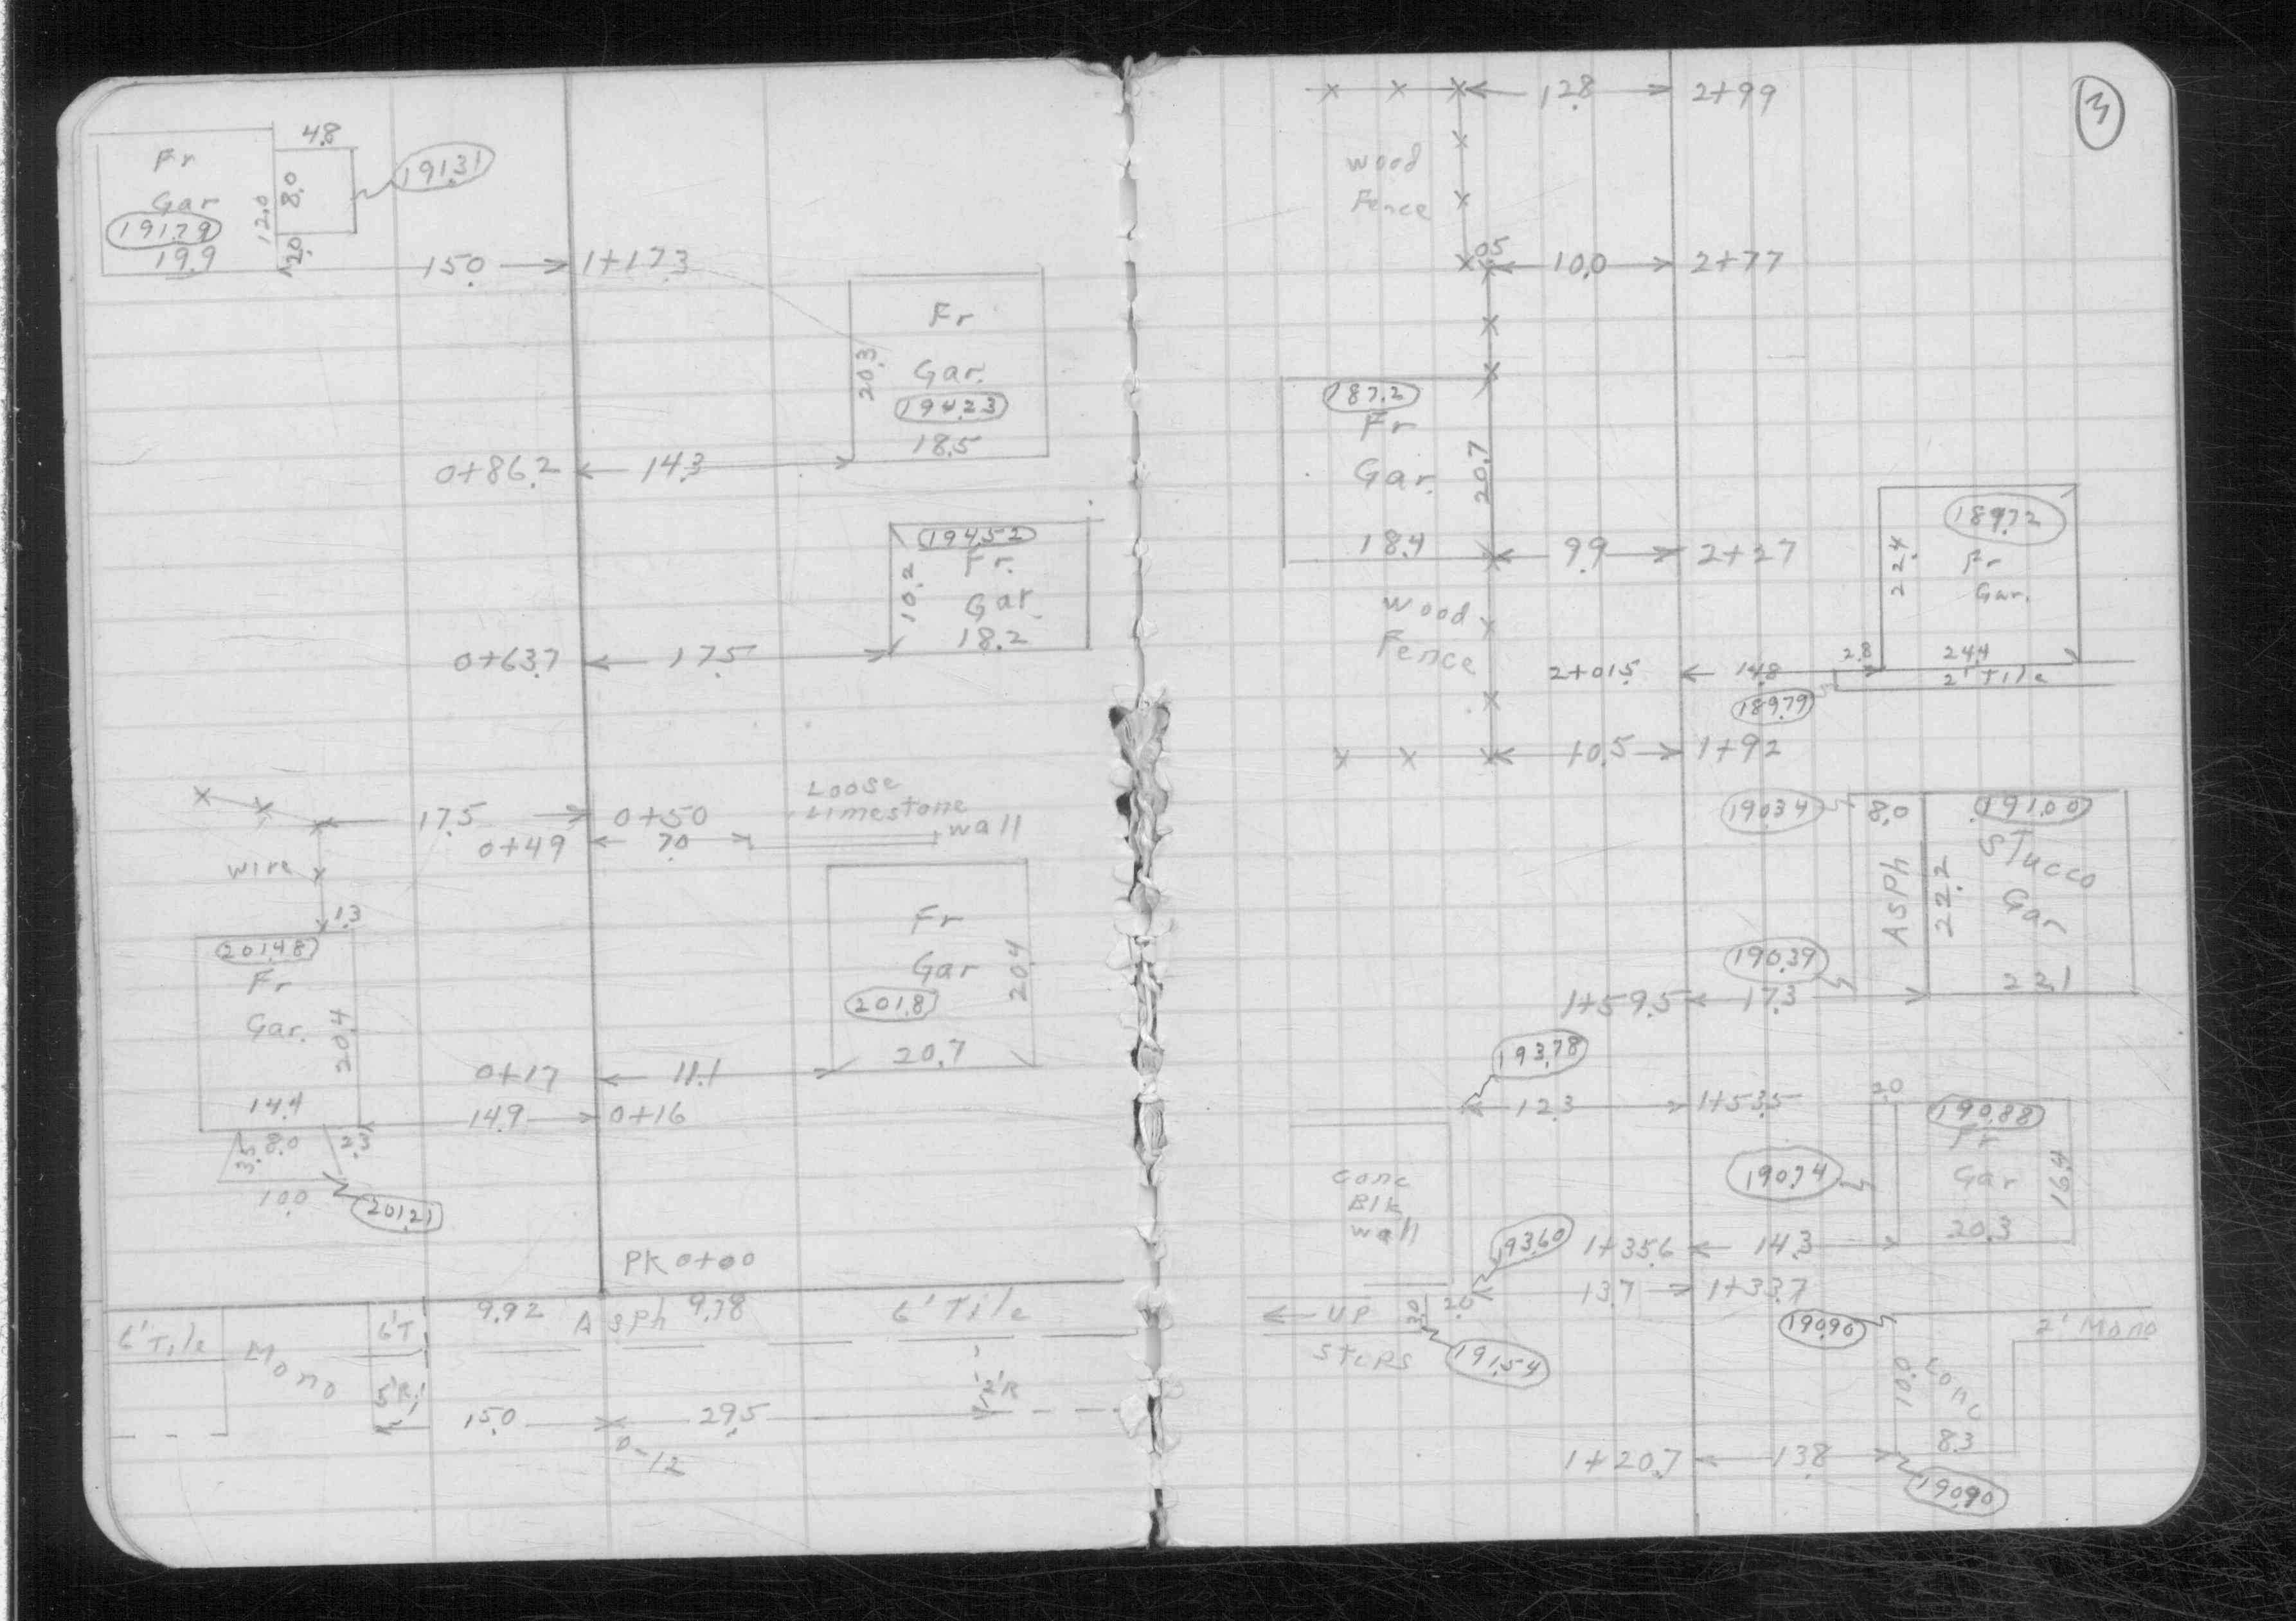 4.8
Fr
Gar
12.0
8.0
191.31
191.79
19.9
2.0
15.0
1+17.3
Fr
Gar.
20.3
194.23
18.5
0+86.2
14.3
194.52
Fr.
Gar
10.2
18.2
0+63.7
17.5
Loose
Limestone
wall
17.5
0+50
0+49
7.0
wire
1.3
201.48
Fr
Gar.
20.4
14.4
Fr
Gar
20.4
201.8
20.7
0+17
11.1
14.9
0+16
3.3
8.0
2.3
10.0
201.21
PK 0+00
9.92
Asph
9.78
6' Tile
6' Tile
Mono
6'T
5'R
2'R
15.0
29.5
0-12
3
12.8
2+99
wood
Fence
0.5
10.0
2+77
187.2
Fr
Gar.
20.7
18.4
9.9
2+27
189.72
Fr
Gar.
22.4
24.4
2' Tile
wood
Fence
2+01.5
14.8
2.8
189.79
10.5
1+92
190.34
8.0
191.00
Stucco
Gar
Asph
22.2
190.39
22.1
1+59.5
17.3
193.78
12.3
1+53.5
2.0
190.88
Fr
Gar
16.4
190.74
20.3
conc
Blk
wall
193.60
1+35.6
14.3
13.7
1+33.7
UP
Steps
3.0
2.0
191.54
190.90
2' Mono
Conc
10.0
8.3
1+20.7
13.8
190.90